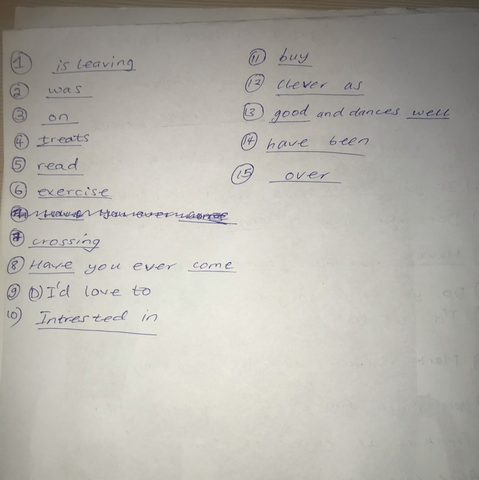 1 is leaving
2 was
3 on
4 treats
5 read
6 exercise
7 crossing
8 Have you ever come
9 D) I'd love to
10) Intrested in
11 buy
12 clever as
13 good and dances well
14 have been
15 over